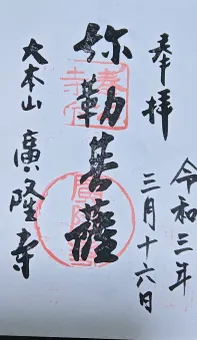 奉拝
令和三年
三月十六日
弥勒菩薩
大本山 廣隆寺